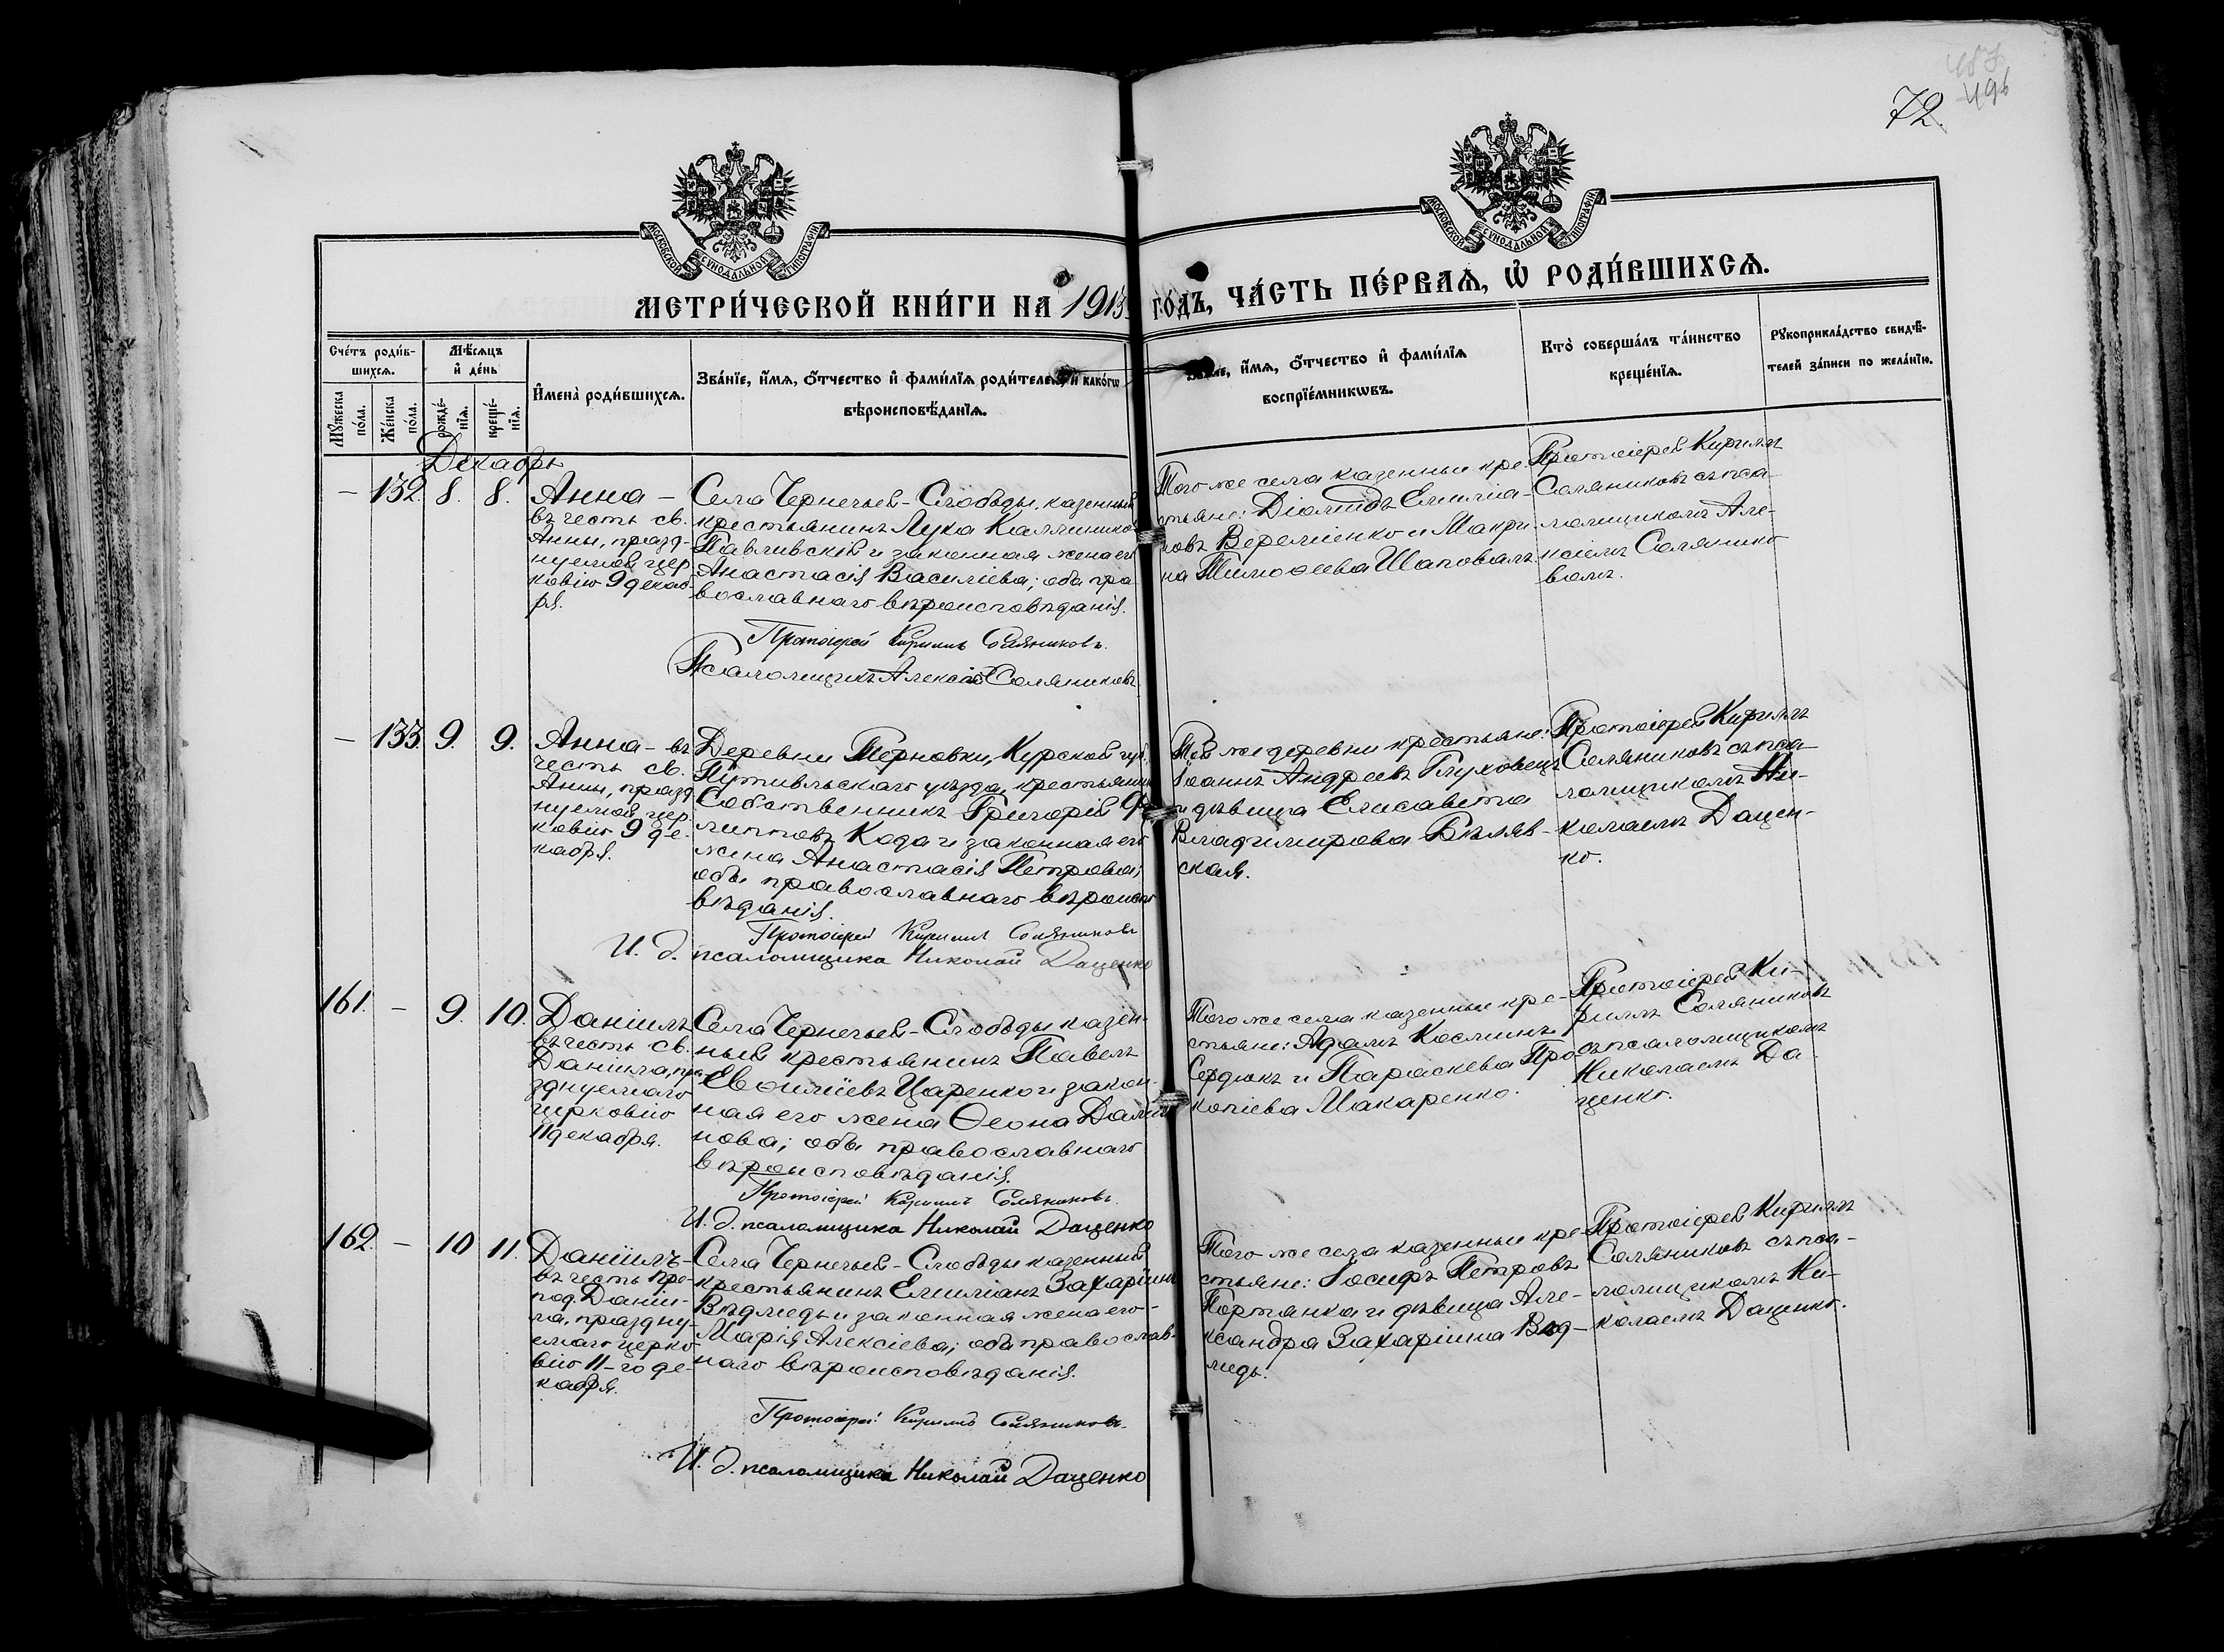 487
496
72.
МОСКОВСКОЙ СѴНОДАЛЬНОЙ ТИПОГРАФІИ
МОСКОВСКОЙ СѴНОДАЛЬНОЙ ТИПОГРАФІИ
МЕТРИ́ЧЕСКОЙ КНИ́ГИ НА 1913
ГО́ДЪ, ЧА́СТЬ ПЕ́РВАѦ, Ѡ҆ РОДИ́ВШИХСѦ.
Сче́тъ роди́в-
шихсѧ.
Мѣ́сяцъ
и҆ де́нь
Мꙋ́жеска
по́ла.
Же́нска
по́ла.
рожде́-
нїѧ.
креще́-
нїѧ.
И҆мена̀ роди́вшихсѧ.
Зва́нїе, и҆́мѧ, ѻ҆́тчество и҆ фами́лїѧ роди́телей, и҆ како́гѡ
вѣроисповѣ́данїѧ.
и҆́мѧ, ѻ҆́тчество и҆ фами́лїѧ
воспрїе́мникѡвъ.
Кто̀ соверша́лъ та́инство
креще́нїѧ.
Рꙋкоприкла́дство свидѣ́-
телей за́писи по жела́нїю.
Декабрь
– 132. 8. 8.
Анна –
въ честь св.
Анны, празд-
нуемой цер-
ковію 9 декаб-
ря.
Села Чернечьей-Слободы, казенный
крестьянинъ Лука Каллиников
Павливскій и законная жена его
Анастасія Василіева; оба пра
вославнаго вѣроисповѣданія.
Протоіерей Кириллъ Соляниковъ.
Псаломщикъ Алексій Соляниковъ
Того же села казенные кре-
стьяне: Діомидъ Емиліа-
новъ Веремѣенко и Макри-
на Тимоѳеева Шаповалъ.
Протоіерей Кириллъ
Соляниковъ съ пса-
ломщикомъ Але-
ксіемъ Соляннко
вомъ.
– 133. 9. 9.
Анна – въ
честь св.
Анны, празд
нуемой цер-
ковію 9 де-
кабря.
Деревни Терновки, Курской губ.,
Путивльскаго уѣзда, крестьянин
Собственникъ Григорій Фи
липповъ Кода и законная его
жена Анастасія Петрова;
оба православнаго вѣроиспо
вѣданія.
Протоіерей Кириллъ Соляниковъ
И. д. псаломщика Николай Даценко
Той же деревни крестьяне:
Іоаннъ Андреевъ Глуховецъ
и дѣвица Елисавета
Владимирова Бѣляв-
ская.
Протоіерей Кириллъ
Соляниковъ съ пса-
ломщикомъ Ни-
колаемъ Дацен-
ко.
161. – 9. 10.
Даніилъ
въ честь св.
Даніила, пра-
зднуемаго
церковію
11 декабря.
Села Чернечьей-Слободы казен-
ный крестьянинъ Павелъ
Евѳиміевъ Царенко и закон-
ная его жена Ѳеона Дамі
нова; оба православнаго
вѣроисповѣданія.
Протоіерей Кириллъ Соляниковъ.
И. д. псаломщика Николай Даценко
Того же села казенные кре-
стьяне: Адамъ Косминъ
Сердюкъ и Параскева Про
копіева Макаренко.
Протоіерей Ки-
риллъ Соляниковъ
съ псаломщикомъ
Николаемъ Да-
ценко.
162. – 10 11.
Даніилъ –
въ честь Про-
под. Даніи-
ла, праздну-
емаго церко-
вію 11-го де-
кабря.
Села Чернечьей-Слободы казенный
крестьянинъ Емиліанъ Захаріинъ
Вѣдмедь и законная жена его –
Марія Алексіева; оба православ-
наго вѣроисповѣданія.
Протоіерей Кириллъ Соляниковъ.
И. д. псаломщика Николай Даценко
Того же села казенные кре-
стьяне: Іосифъ Петровъ
Портянка и дѣвица Але-
ксандра Захаріина Вѣд-
медь.
Протоіерей Кириллъ
Соляниковъ съ пса-
ломщикомъ Ни-
колаемъ Даценко.